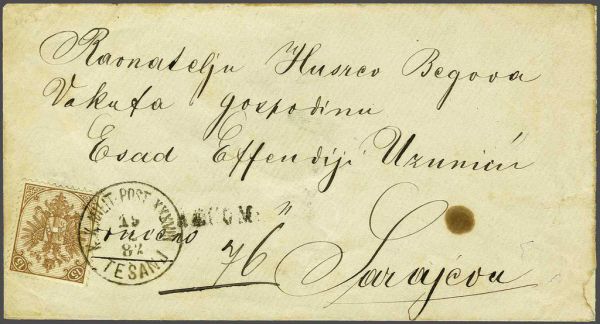 Ravnatelju Husrev Begova
Vakufa gospodinu
Esad Effendiji Uzuniću
K.K. MILIT. POST XXXVIII
15
82
TEŠANJ
RECOM.
76
Sarajevu
15 15